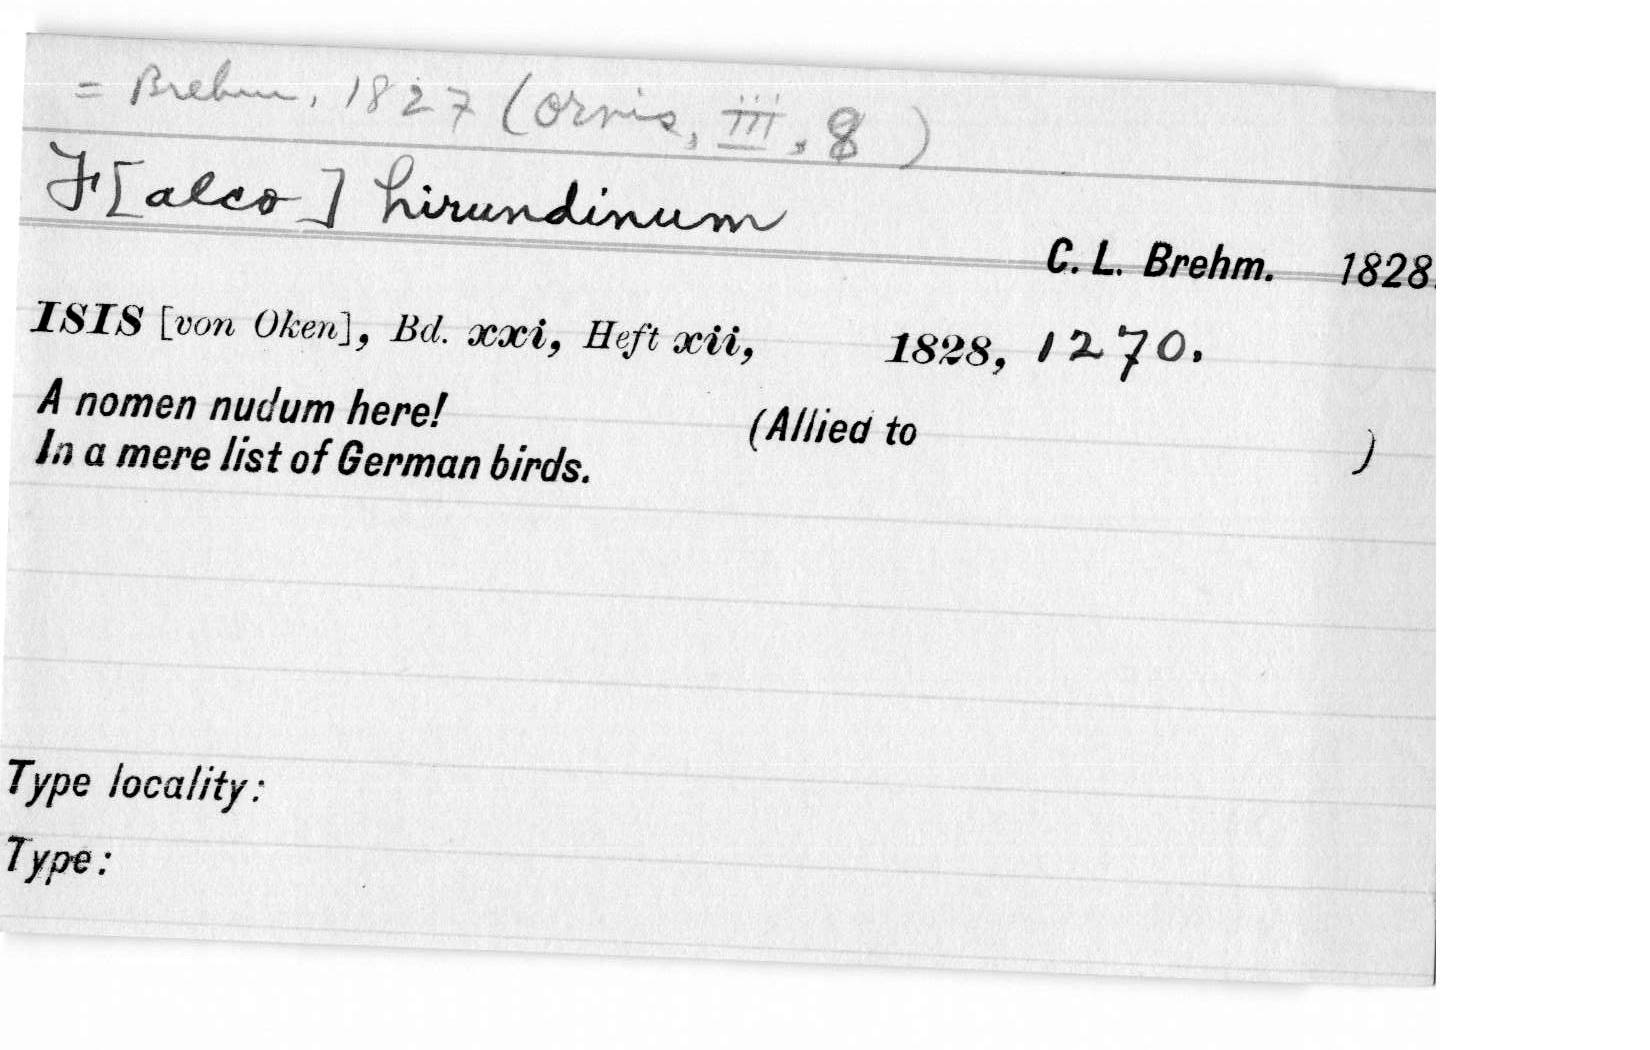 = Brehm, 1827 (Ornis, III, 8)
F[alco] hirundinum
C. L. Brehm. 1828.
ISIS [von Oken], Bd. xxi, Heft xii, 1828, 1270.
A nomen nudum here! (Allied to )
In a mere list of German birds.
Type locality:
Type: